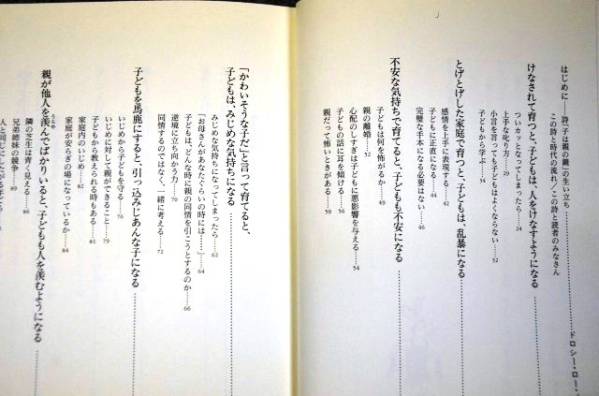 はじめに――詩「子は親の鏡」の生い立ち
ドロシー・ロー・
この詩と時代の流れ／この詩と読者のみなさん
けなされて育つと、子どもは、人をけなすようになる
ついカッとなってしまったら……24
上手な叱り方……29
小言を言っても子どもはよくならない……32
子どもから学ぶ……34
とげとげした家庭で育つと、子どもは、乱暴になる
感情を上手に表現する……42
子どもに正直になる……44
完璧な手本になる必要はない……46
不安な気持ちで育てると、子どもも不安になる
子どもは何を怖がるか……49
親の離婚……52
心配のしすぎは子どもに悪影響を与える……54
子どもの話に耳を傾ける……56
親だって怖いときがある……58
「かわいそうな子だ」と言って育てると、
子どもは、みじめな気持ちになる
みじめな気持ちになってしまったら……62
「お母さんがあなたぐらいの時には……」……64
子どもは、どんな時に親の同情を引こうとするのか……66
逆境に立ち向かう力……70
同情するのではなく、一緒に考える……72
子どもを馬鹿にすると、引っ込みじあんな子になる
いじめから子どもを守る……76
いじめに対して親ができること……79
子どもから教えられる時もある……81
家庭内のいじめ……82
家庭が安らぎの場になっているか……84
親が他人を羨んでばかりいると、子どもも人を羨むようになる
隣の芝生は青く見える……86
兄弟姉妹の競争……89